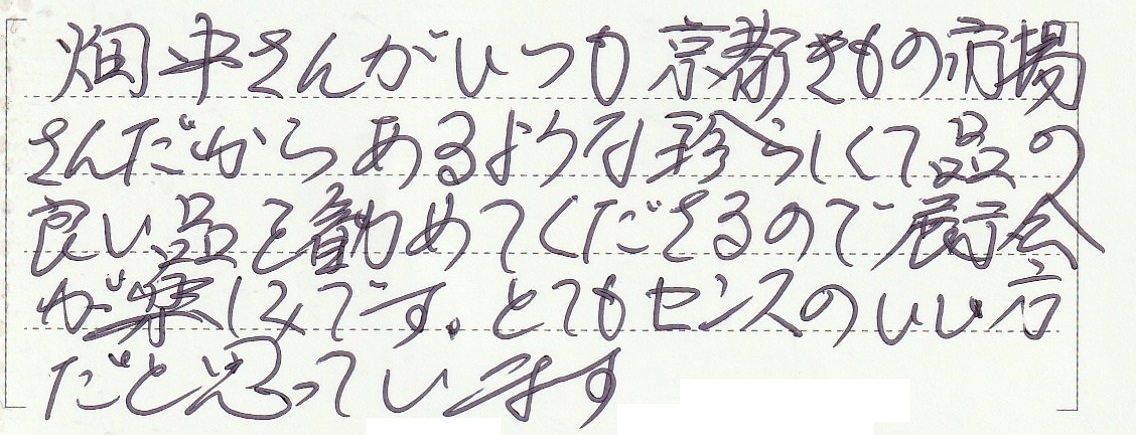 畑中さんがいつも京都きもの市場
さんだからあるような珍らしくて品の
良い品を勧めてくださるので展示会
が楽しみです。とてもセンスのいい方
だと思っています